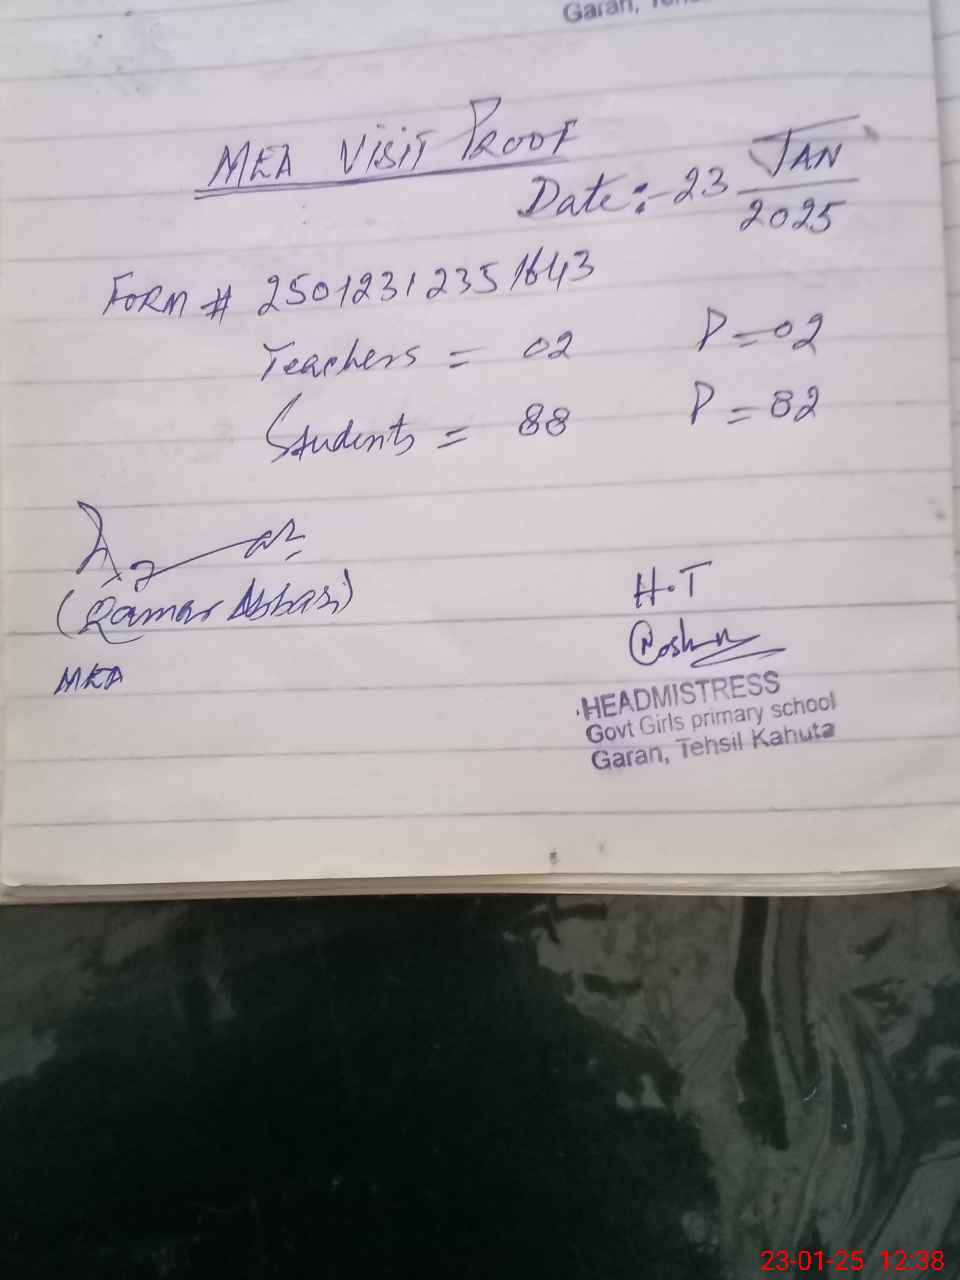 Garan,
MEA VISIT PROOF
Date:- 23 JAN 2025
FORM # 25012312351643
Teachers = 02 P = 02
Students = 88 P = 82
(Qamar Abbas)
MEA
H.T
HEADMISTRESS
Govt Girls primary school
Garan, Tehsil Kahuta
23-01-25 12:38